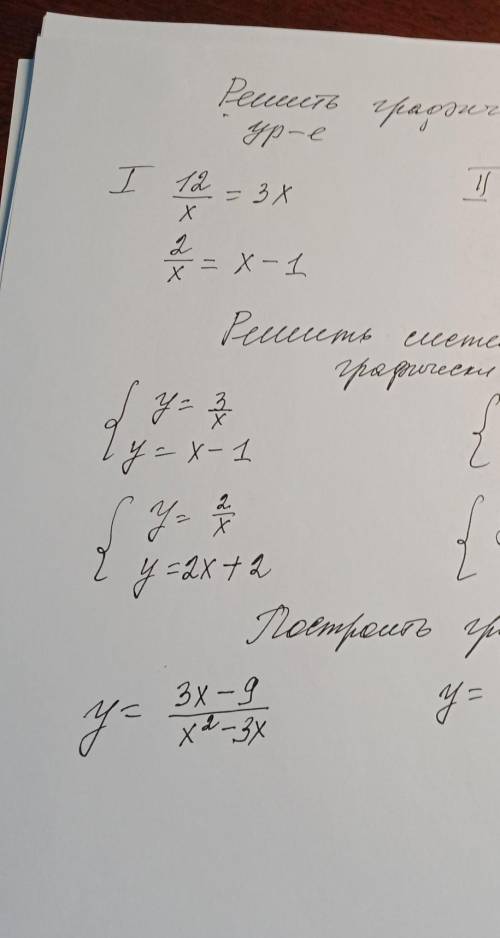 Решить графич
ур-е
I 12/x = 3x II
2/x = x - 1
Решить систе
графически
{ y = 3/x {
y = x - 1
{ y = 2/x {
y = 2x + 2
Построить гр
y = (3x - 9)/(x² - 3x) y =